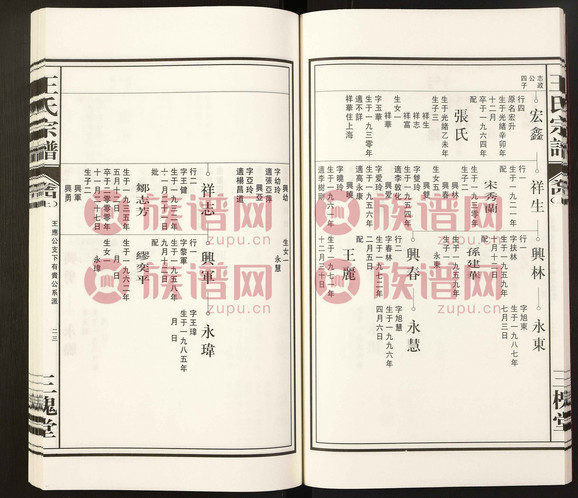 王氏宗譜
志政
公
四子
宏鑫
行四
原名宏升
生于光緒辛卯年
十二月
卒于一九六四年
配
張氏
生于光緒乙未年
生子三
祥生
祥富
祥志
生女一
字玉華
生于一九三〇年
適不詳
祥華住上海
祥生
行一
生于一九二一年
配
宋秀蘭
生于一九三〇年
生子二
興林
興春
生女五
興雙
字雙玲
生于一九五四年
適李敦化
興愛
字愛玲
生于一九五六年
適高永康
興曉
字曉玲
生于一九六一年
適李樹剛
興林
行一
字扶林
生于一九五〇年
十月十二日
配
孫建華
生子一
永東
興春
行二
字春林
生于一九七二年
二月五日
配
王麗
十二月二十日
永東
字旭東
生于一九八七年
七月三日
永慧
字旭慧
生于一九九六年
四月六日
三槐堂
王氏宗譜
興幼
字幼玲
適張亞萍
興亞
字亞玲
適楊昌道
祥志
行二
字王健
生于一九三二年
十一月二十一日
妣
鄒志芳
生于一九三五年
五月十二日
卒于二〇〇〇年
十一月二十七日
生子二
興軍
興勇
生女一
永慧
興軍
行一
字黎軍
生于一九五八年
十月十二日
配
繆奕平
生于一九六二年
月 日
生女一
永瑋
永瑋
字王瑋
生于一九八五年
月 日
王應公支下有貴公系派
二三
三槐堂
族谱网
zupu.cn